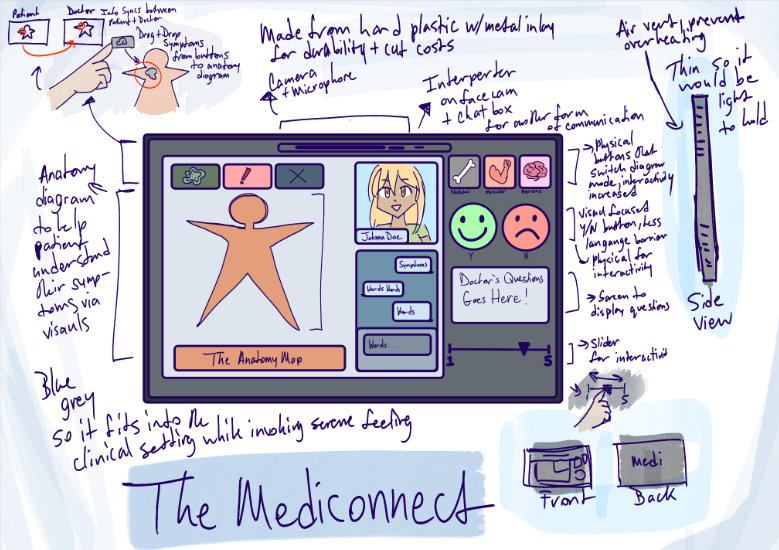 Patient
Doctor
Info Syncs between
Patient + Doctor
Drag + Drop
Symptoms
from buttons
to anatomy
diagram
Made from hard plastic w/ metal inlay
for durability + cut costs
Camera
+ Microphone
Interperter
on facecam
+ chat box
for another form
of communication
Air vent, prevent
overheating
Thin so it
would be
light
to hold
Side
View
Anatomy
diagram
to help
patient
understand
their symp-
toms via
visauls
! X
Johnna Doe
Symptoms
Words Words
Words
Words.....
The Anatomy Map
Skeletal
Muscular
Nervous
Y N
Doctor's Questions
Goes Here!
1 5
Physical
buttons that
switch diagram
mode, interactivity
increased
Visual focused
Y/N button, less
langauge barrier
physical for
interactivity
Screen to
display questions
Slider
for interactivit
1 5
Blue
grey
so it fits into the
clinical setting while invoking serene feeling
The Mediconnect
Medi
Front
Back